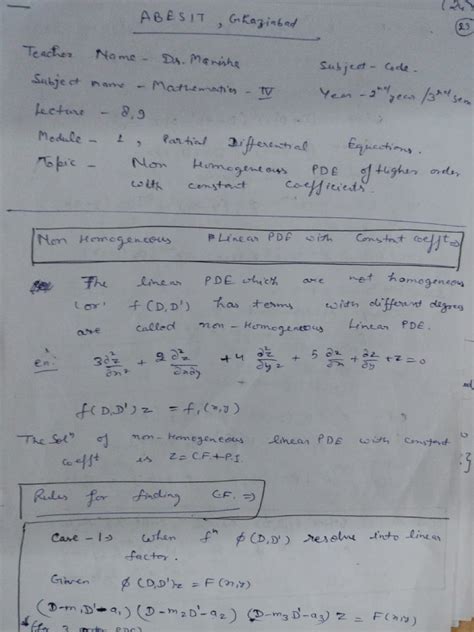 ABESIT, Ghaziabad
23
Teacher Name - Dr. Manisha Subject - Code.
Subject name - Mathematics - IV Year - 2nd year / 3rd sem
Lecture - 8,9
Module - 1, Partial Differential Equations.
Topic - Non Homogeneous PDE of Higher order
with constant coefficients.
Non Homogeneous Linear PDE with Constant coefft ⇒
The linear PDE which are not homogeneous
(or f(D,D') has terms with different degrees
are called non-Homogeneous Linear PDE.
ex: 3∂²z/∂x² + 2 ∂²z/∂x∂y + 4 ∂²z/∂y² + 5 ∂z/∂x + ∂z/∂y + z = 0
f(D,D')z = f₁(x,y)
The Solⁿ of non-Homogeneous linear PDE with constant
coefft is z = C.F + P.I
Rules for finding C.F. ⇒
Case - 1 ⇒ when fⁿ ϕ(D,D') resolve into linear
factor.
Given ϕ(D,D')z = F(x,y)
(D-m₁D'-a₁) (D-m₂D'-a₂) (D-m₃D'-a₃) z = F(x,y)